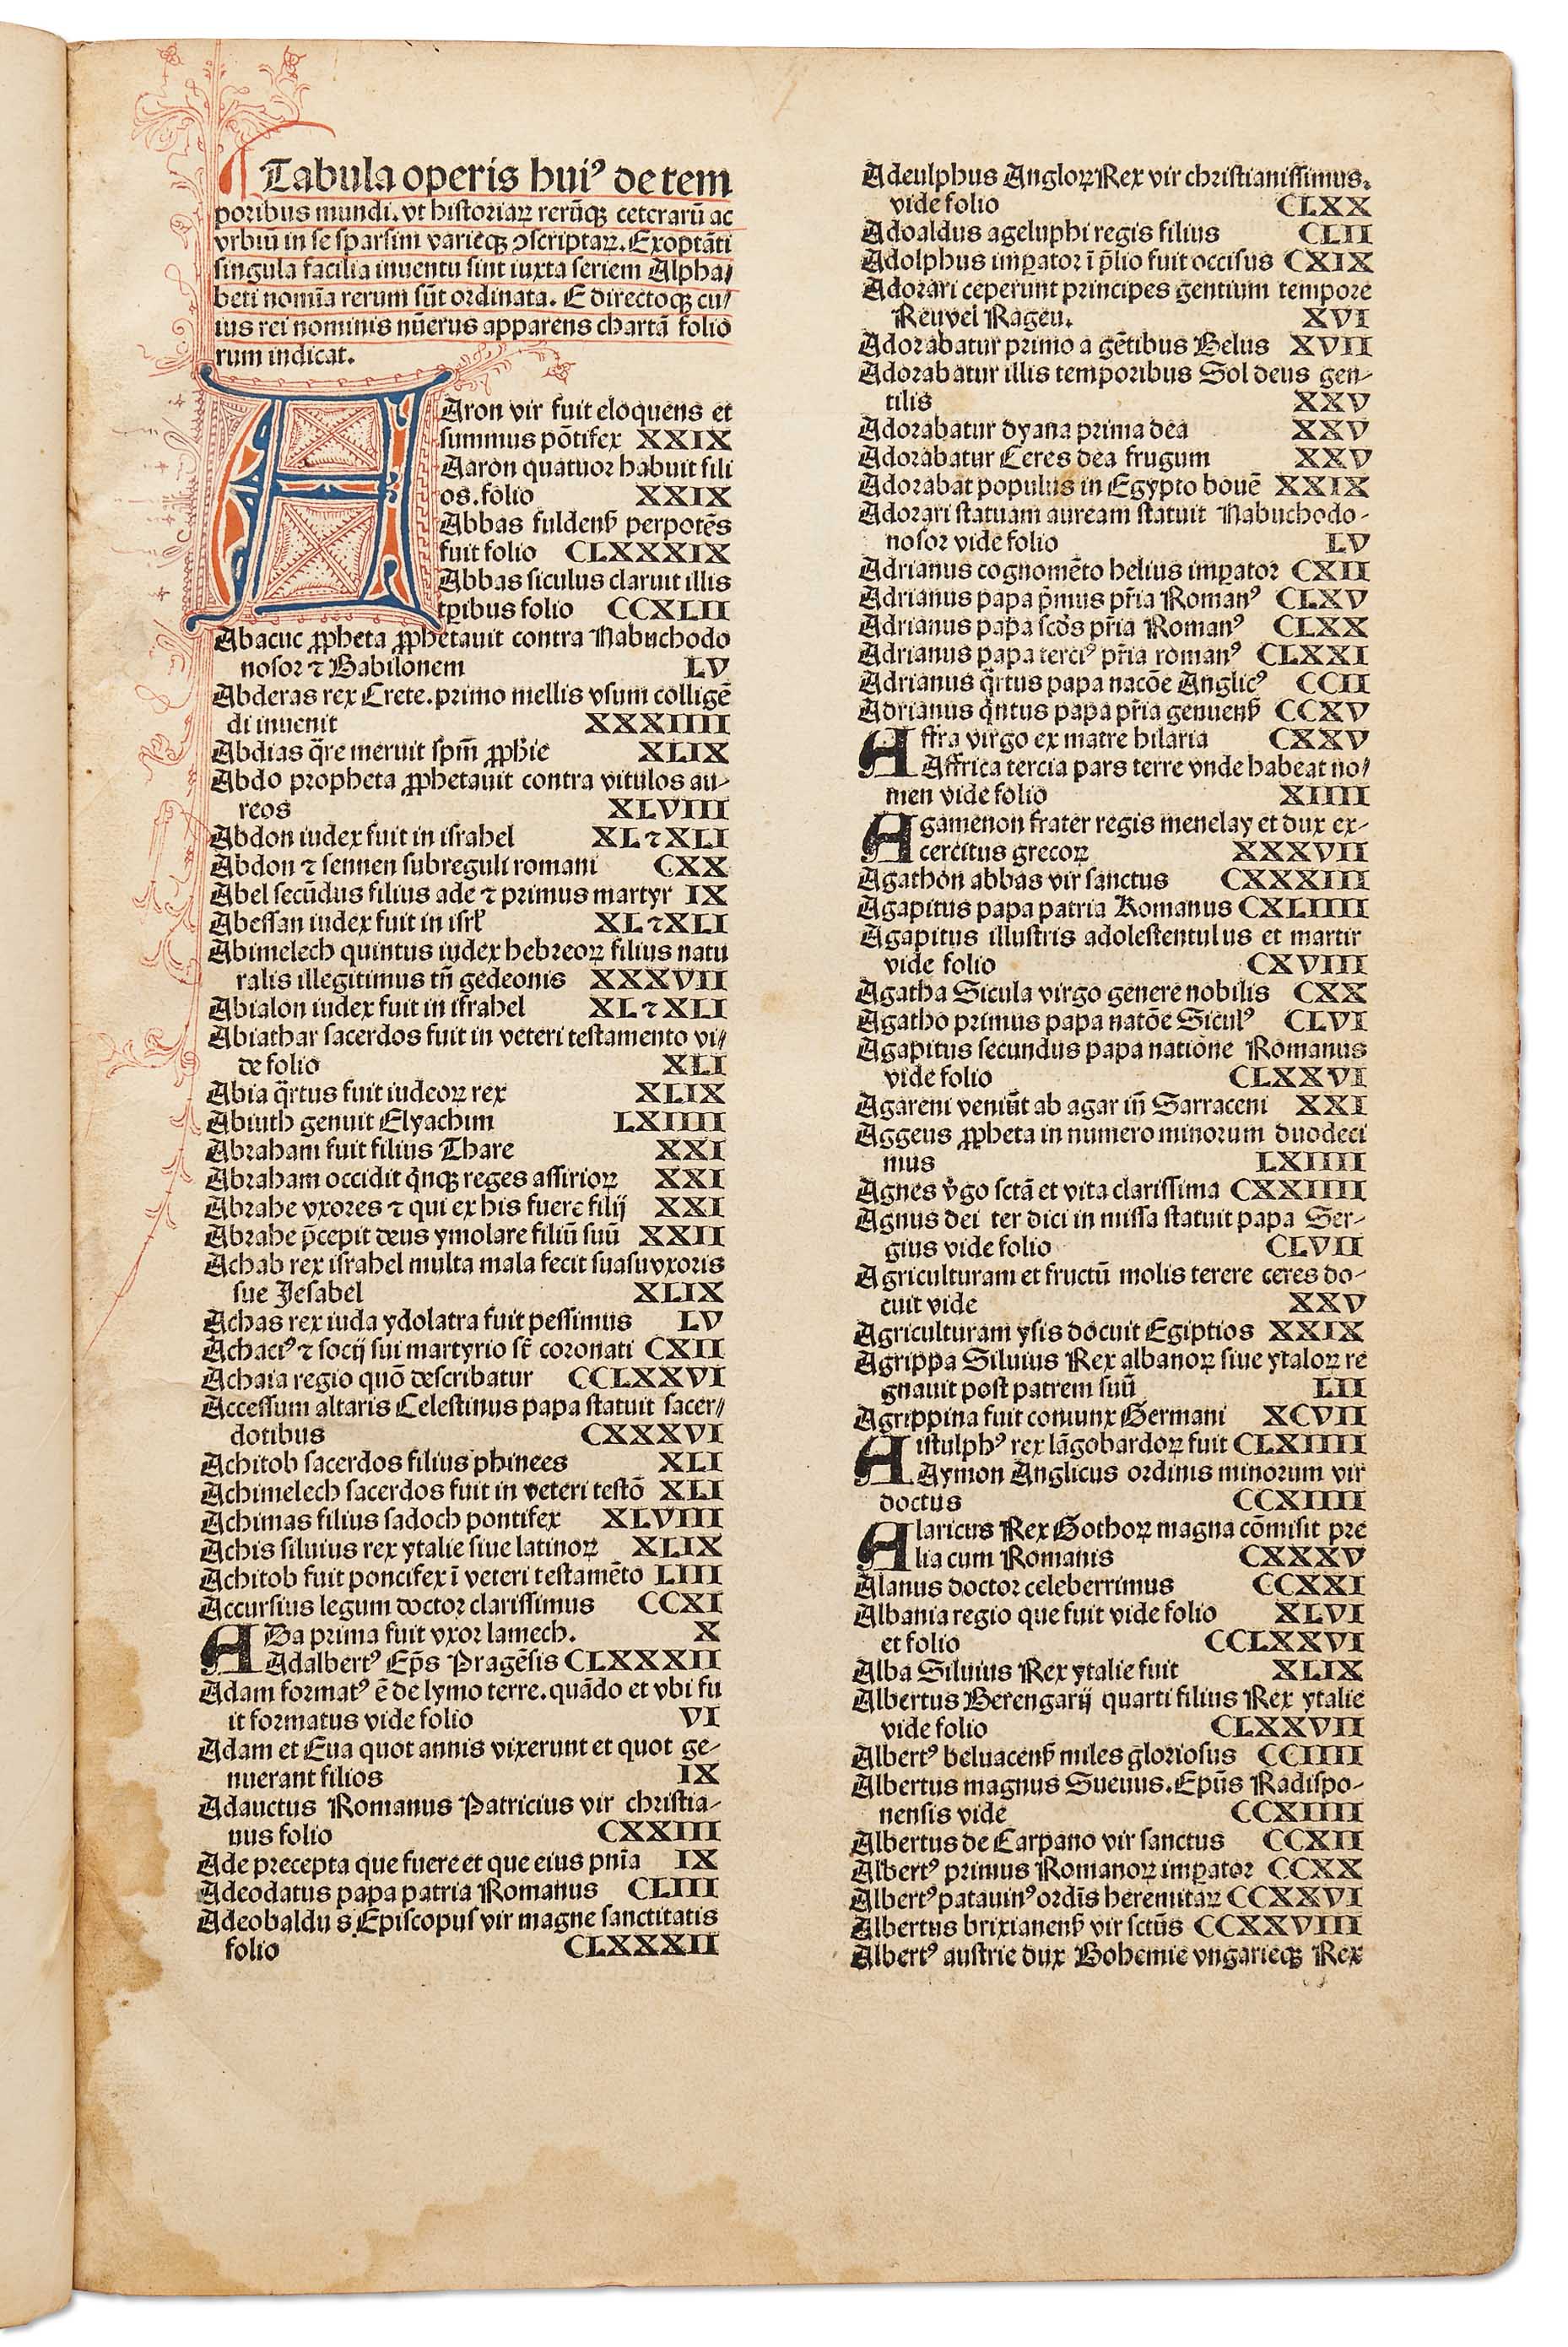 Tabula operis huiꝰ de tem
poribus mundi. vt historiaꝝ rerūqꝫ ceterarū ac
vrbiū in se sparsim varieqꝫ ꝯscriptaꝝ. Exoptāti
singula facilia inuentu sint iuxta seriem Alpha⸗
beti nomīa rerum sūt ordinata. E directoqꝫ cu⸗
ius rei nominis nūerus apparens chartā folio
rum indicat.
AAron vir fuit eloquens et
summus pōtifex XXIX
Aaron quatuor habuit fili
os. folio XXIX
Abbas fuldenß perpotēs
fuit folio CLXXXIX
Abbas siculus claruit illis
tꝑibus folio CCXLII
Abacuc ꝓpheta ꝓphetauit contra Nabuchodo
nosor ⁊ Babilonem LV
Abderas rex Crete. primo mellis vsum colligē
di inuenit XXXIIII
Abdias q̄re meruit spm̄ ꝓphie XLIX
Abdo propheta ꝓphetauit contra vitulos au⸗
reos XLVIII
Abdon iudex fuit in israhel XL ⁊ XLI
Abdon ⁊ sennen subreguli romani CXX
Abel secūdus filius ade ⁊ primus martyr IX
Abessan iudex fuit in isrł XL ⁊ XLI
Abimelech quintus iudex hebreoꝝ filius natu
ralis illegitimus tn̄ gedeonis XXXVII
Abialon iudex fuit in israhel XL ⁊ XLI
Abiathar sacerdos fuit in veteri testamento vi⸗
de folio XLI
Abia q̄rtus fuit iudeoꝝ rex XLIX
Abiuth genuit Elyachim LXIIII
Abraham fuit filius Thare XXI
Abraham occidit qͥnqꝫ reges assirioꝝ XXI
Abrahe vxores ⁊ qui ex his fuere filij XXI
Abrahe p̄cepit deus ymolare filiū suū XXII
Achab rex israhel multa mala fecit suasu vxoris
sue Jesabel XLIX
Achas rex iuda ydolatra fuit pessimus LV
Achaciꝰ ⁊ socij sui martyrio st̄ coronati CXII
Achaia regio quō describatur CCLXXVI
Accessum altaris Celestinus papa statuit sacer⸗
dotibus CXXXVI
Achitob sacerdos filius phinees XLI
Achimelech sacerdos fuit in veteri testō XLI
Achimas filius sadoch pontifex XLVIII
Achis siluius rex ytalie siue latinoꝝ XLIX
Achitob fuit poncifex ī veteri testamēto LIII
Accursius legum doctor clarissimus CCXI
ADa prima fuit vxor lamech. X
Adalbertꝰ Ep̄s Pragēsis CLXXXII
Adam formatꝰ ē de lymo terre. quādo et vbi fu
it formatus vide folio VI
Adam et Eua quot annis vixerunt et quot ge⸗
nuerant filios IX
Adauctus Romanus Patricius vir christia⸗
nus folio CXXIII
Ade precepta que fuere et que eius pnīa IX
Adeodatus papa patria Romanus CLIII
Adeobaldus Episcopus vir magne sanctitatis
folio CLXXXII
Adeulphus Angloꝝ Rex vir christianissimus.
vide folio CLXX
Adoaldus ageluphi regis filius CLII
Adolphus imꝑator ī p̄lio fuit occisus CXIX
Adorari ceperunt principes gentium tempore
Reuvel Rageu. XVI
Adorabatur primo a gētibus Belus XVII
Adorabatur illis temporibus Sol deus gen⸗
tilis XXV
Adorabatur dyana prima dea XXV
Adorabatur Ceres dea frugum XXV
Adorabat populus in Egypto bouē XXIX
Adorari statuam auream statuit Nabuchodo⸗
nosor vide folio LV
Adrianus cognomēto helius imꝑator CXII
Adrianus papa pͥmus pr̄ia Romanꝰ CLXV
Adrianus papa scd̄s pr̄ia Romanꝰ CLXX
Adrianus papa terciꝰ pr̄ia romanꝰ CLXXI
Adrianus q̄rtus papa nacōe Anglicꝰ CCII
Adrianus qͥntus papa pr̄ia genuenß CCXV
Affra virgo ex matre hilaria CXXV
Affrica tercia pars terre vnde habeat no⸗
men vide folio XIIII
Agamenon frater regis menelay et dux ex⸗
cercitus grecoꝝ XXXVII
Agathon abbas vir sanctus CXXXIII
Agapitus papa patria Romanus CXLIIII
Agapitus illustris adolestentulus et martir
vide folio CXVIII
Agatha Sicula virgo genere nobilis CXX
Agatho primus papa natōe Siculꝰ CLVI
Agapitus secundus papa natione Romanus
vide folio CLXXVI
Agareni veniūt ab agar iñ Sarraceni XXI
Aggeus ꝓpheta in numero minorum duodeci
mus LXIIII
Agnes vͥgo sctā et vita clarissima CXXIIII
Agnus dei ter dici in missa statuit papa Ser⸗
gius vide folio CLVII
Agriculturam et fructū molis terere ceres do⸗
cuit vide XXV
Agriculturam ysis docuit Egiptios XXIX
Agrippa Siluius Rex albanoꝝ siue ytaloꝝ re
gnauit post patrem suū LII
Agrippina fuit coniunx Germani XCVII
Aistulphꝰ rex lāgobardoꝝ fuit CLXIIII
Aymon Anglicus ordinis minorum vir
doctus CCXIIII
Alaricus Rex Gothoꝝ magna cōmisit pre
lia cum Romanis CXXXV
Alanus doctor celeberrimus CCXXI
Albania regio que fuit vide folio XLVI
et folio CCLXXVI
Alba Siluius Rex ytalie fuit XLIX
Albertus Berengarij quarti filius Rex ytalie
vide folio CLXXVII
Albertꝰ beluacenß miles gloriosus CCIIII
Albertus magnus Sueuus. Epūs Radispo⸗
nensis vide CCXIIII
Albertus de Carpano vir sanctus CCXII
Albertꝰ primus Romanoꝝ imꝑator CCXX
Albertꝰ patauinꝰ ordīs heremitaꝝ CCXXVI
Albertus brixianenß vir sctūs CCXXVIII
Albertꝰ austrie dux Bohemie vngarieqꝫ Rex